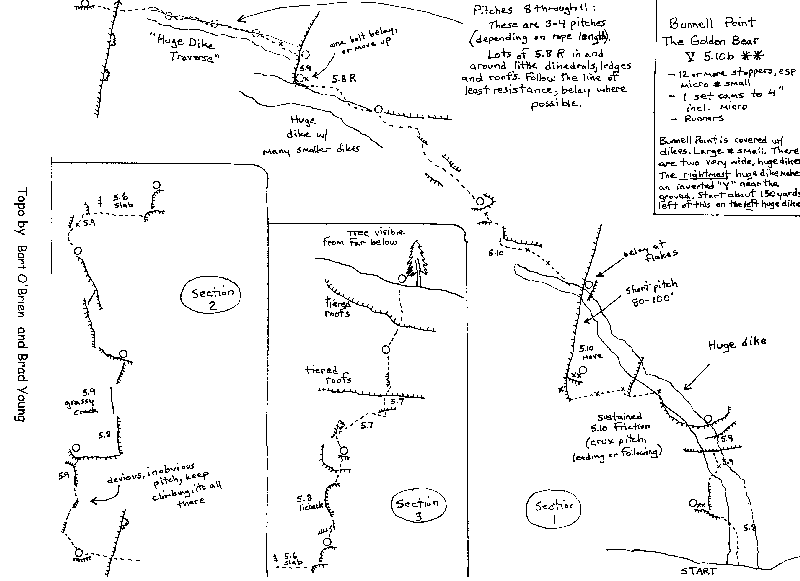 Pitches 8 through 11:
These are 3-4 pitches
(depending on rope length).
Lots of 5.8 R in and
around little dihedrals, ledges
and roofs. Follow the line of
least resistance; belay where
possible.
Bunnell Point
The Golden Bear
V 5.10b **
- 12 or more stoppers, esp
micro & small
- 1 set cams to 4"
incl. micro
- Runners
Bunnell Point is covered w/
dikes. Large & small. There
are two very wide, huge dikes
The rightmost huge dike makes
an inverted "Y" near the
ground. Start about 150 yards
left of this on the left huge dike
"Huge Dike
Traverse"
one bolt belay,
or move up
5.9
5.8 R
Huge
dike w/
many smaller dikes
5.10
belay at
flakes
Short pitch
80-100'
5.10
move
Huge dike
Sustained
5.10 Friction
(crux pitch
leading or following)
5.9
5.9
5.8
START
Section
1
Topo by Bart O'Brien and Brad Young
5.6
slab
5.9
Section
2
5.9
grassy
crack
5.8
5.9
devious, inobvious
pitch, keep
climbing, it's all
there
Tree visible
from far below
tiered
roofs
tiered
roofs
5.7
5.7
5.8
lieback
Section
3
5.6
slab